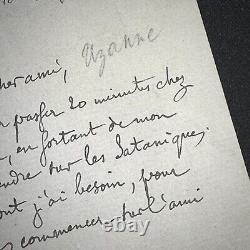 Uzanne
cher ami,
passer 20 minutes chez
, en sortant de mon
endre sur les Sataniques,
ont j'ai besoin, pour
commencer, par l'ami